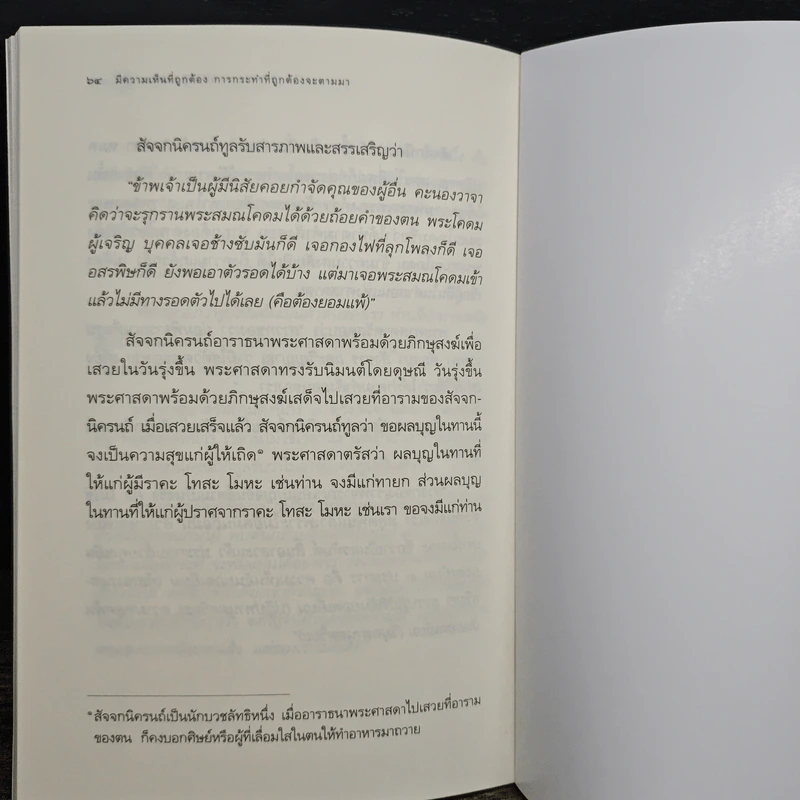 ๖๔ มีความเห็นที่ถูกต้อง การกระทำที่ถูกต้องจะตามมา
สัจจกนิครนถ์ทูลรับสารภาพและสรรเสริญว่า
"ข้าพเจ้าเป็นผู้มีนิสัยคอยกำจัดคุณของผู้อื่น คะนองวาจา
คิดว่าจะรุกรานพระสมณโคดมได้ด้วยถ้อยคำของตน พระโคดม
ผู้เจริญ บุคคลเจอช้างซับมันก็ดี เจอกองไฟที่ลุกโพลงก็ดี เจอ
อสรพิษก็ดี ยังพอเอาตัวรอดได้บ้าง แต่มาเจอพระสมณโคดมเข้า
แล้วไม่มีทางรอดตัวไปได้เลย (คือต้องยอมแพ้)"
สัจจกนิครนถ์อาราธนาพระศาสดาพร้อมด้วยภิกษุสงฆ์เพื่อ
เสวยในวันรุ่งขึ้น พระศาสดาทรงรับนิมนต์โดยดุษณี วันรุ่งขึ้น
พระศาสดาพร้อมด้วยภิกษุสงฆ์เสด็จไปเสวยที่อารามของสัจจก-
นิครนถ์ เมื่อเสวยเสร็จแล้ว สัจจกนิครนถ์ทูลว่า ขอผลบุญในทานนี้
จงเป็นความสุขแก่ผู้ให้เถิด* พระศาสดาตรัสว่า ผลบุญในทานที่
ให้แก่ผู้มีราคะ โทสะ โมหะ เช่นท่าน จงมีแก่ทายก ส่วนผลบุญ
ในทานที่ให้แก่ผู้ปราศจากราคะ โทสะ โมหะ เช่นเรา ขอจงมีแก่ท่าน
* สัจจกนิครนถ์เป็นนักบวชลัทธิหนึ่ง เมื่ออาราธนาพระศาสดาไปเสวยที่อาราม
ของตน ก็คงบอกศิษย์หรือผู้ที่เลื่อมใสในตนให้ทำอาหารมาถวาย